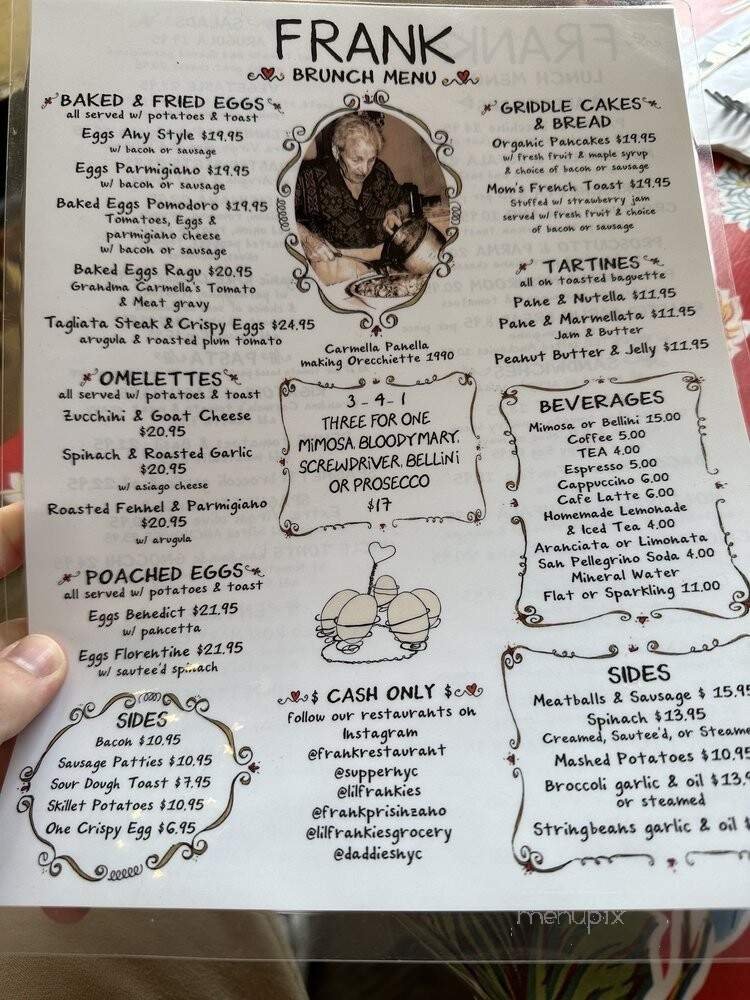 FRANK
BRUNCH MENU
BAKED & FRIED EGGS
all served w/ potatoes & toast
Eggs Any Style $19.95
w/ bacon or sausage
Eggs Parmigiano $19.95
w/ bacon or sausage
Baked Eggs Pomodoro $19.95
Tomatoes, Eggs &
parmigiano cheese
w/ bacon or sausage
Baked Eggs Ragu $20.95
Grandma Carmella's Tomato
& Meat gravy
Tagliata Steak & Crispy Eggs $24.95
arugula & roasted plum tomato
OMELETTES
all served w/ potatoes & toast
Zucchini & Goat Cheese
$20.95
Spinach & Roasted Garlic
$20.95
w/ asiago cheese
Roasted Fennel & Parmigiano
$20.95
w/ arugula
POACHED EGGS
all served w/ potatoes & toast
Eggs Benedict $21.95
w/ pancetta
Eggs Florentine $21.95
w/ sautee'd spinach
SIDES
Bacon $10.95
Sausage Patties $10.95
Sour Dough Toast $7.95
Skillet Potatoes $10.95
One Crispy Egg $6.95
Carmella Panella
making Orecchiette 1990
3 - 4 - 1
THREE FOR ONE
MIMOSA, BLOODY MARY,
SCREWDRIVER, BELLINI
OR PROSECCO
$17
$ CASH ONLY $
follow our restaurants on
Instagram
@frankrestaurant
@suppernyc
@lilfrankies
@frankprisinzano
@lilfrankiesgrocery
@daddiesnyc
GRIDDLE CAKES
& BREAD
Organic Pancakes $19.95
w/ fresh fruit & maple syrup
& choice of bacon or sausage
Mom's French Toast $19.95
Stuffed w/ strawberry jam
served w/ fresh fruit & choice
of bacon or sausage
TARTINES
all on toasted baguette
Pane & Nutella $11.95
Pane & Marmellata $11.95
Jam & Butter
Peanut Butter & Jelly $11.95
BEVERAGES
Mimosa or Bellini 15.00
Coffee 5.00
TEA 4.00
Espresso 5.00
Cappuccino 6.00
Cafe Latte 6.00
Homemade Lemonade
& Iced Tea 4.00
Aranciata or Limonata
San Pellegrino Soda 4.00
Mineral Water
Flat or Sparkling 11.00
SIDES
Meatballs & Sausage $ 15.95
Spinach $13.95
Creamed, Sautee'd, or Steame
Mashed Potatoes $10.95
Broccoli garlic & oil $13.9
or steamed
Stringbeans garlic & oil $
menupix